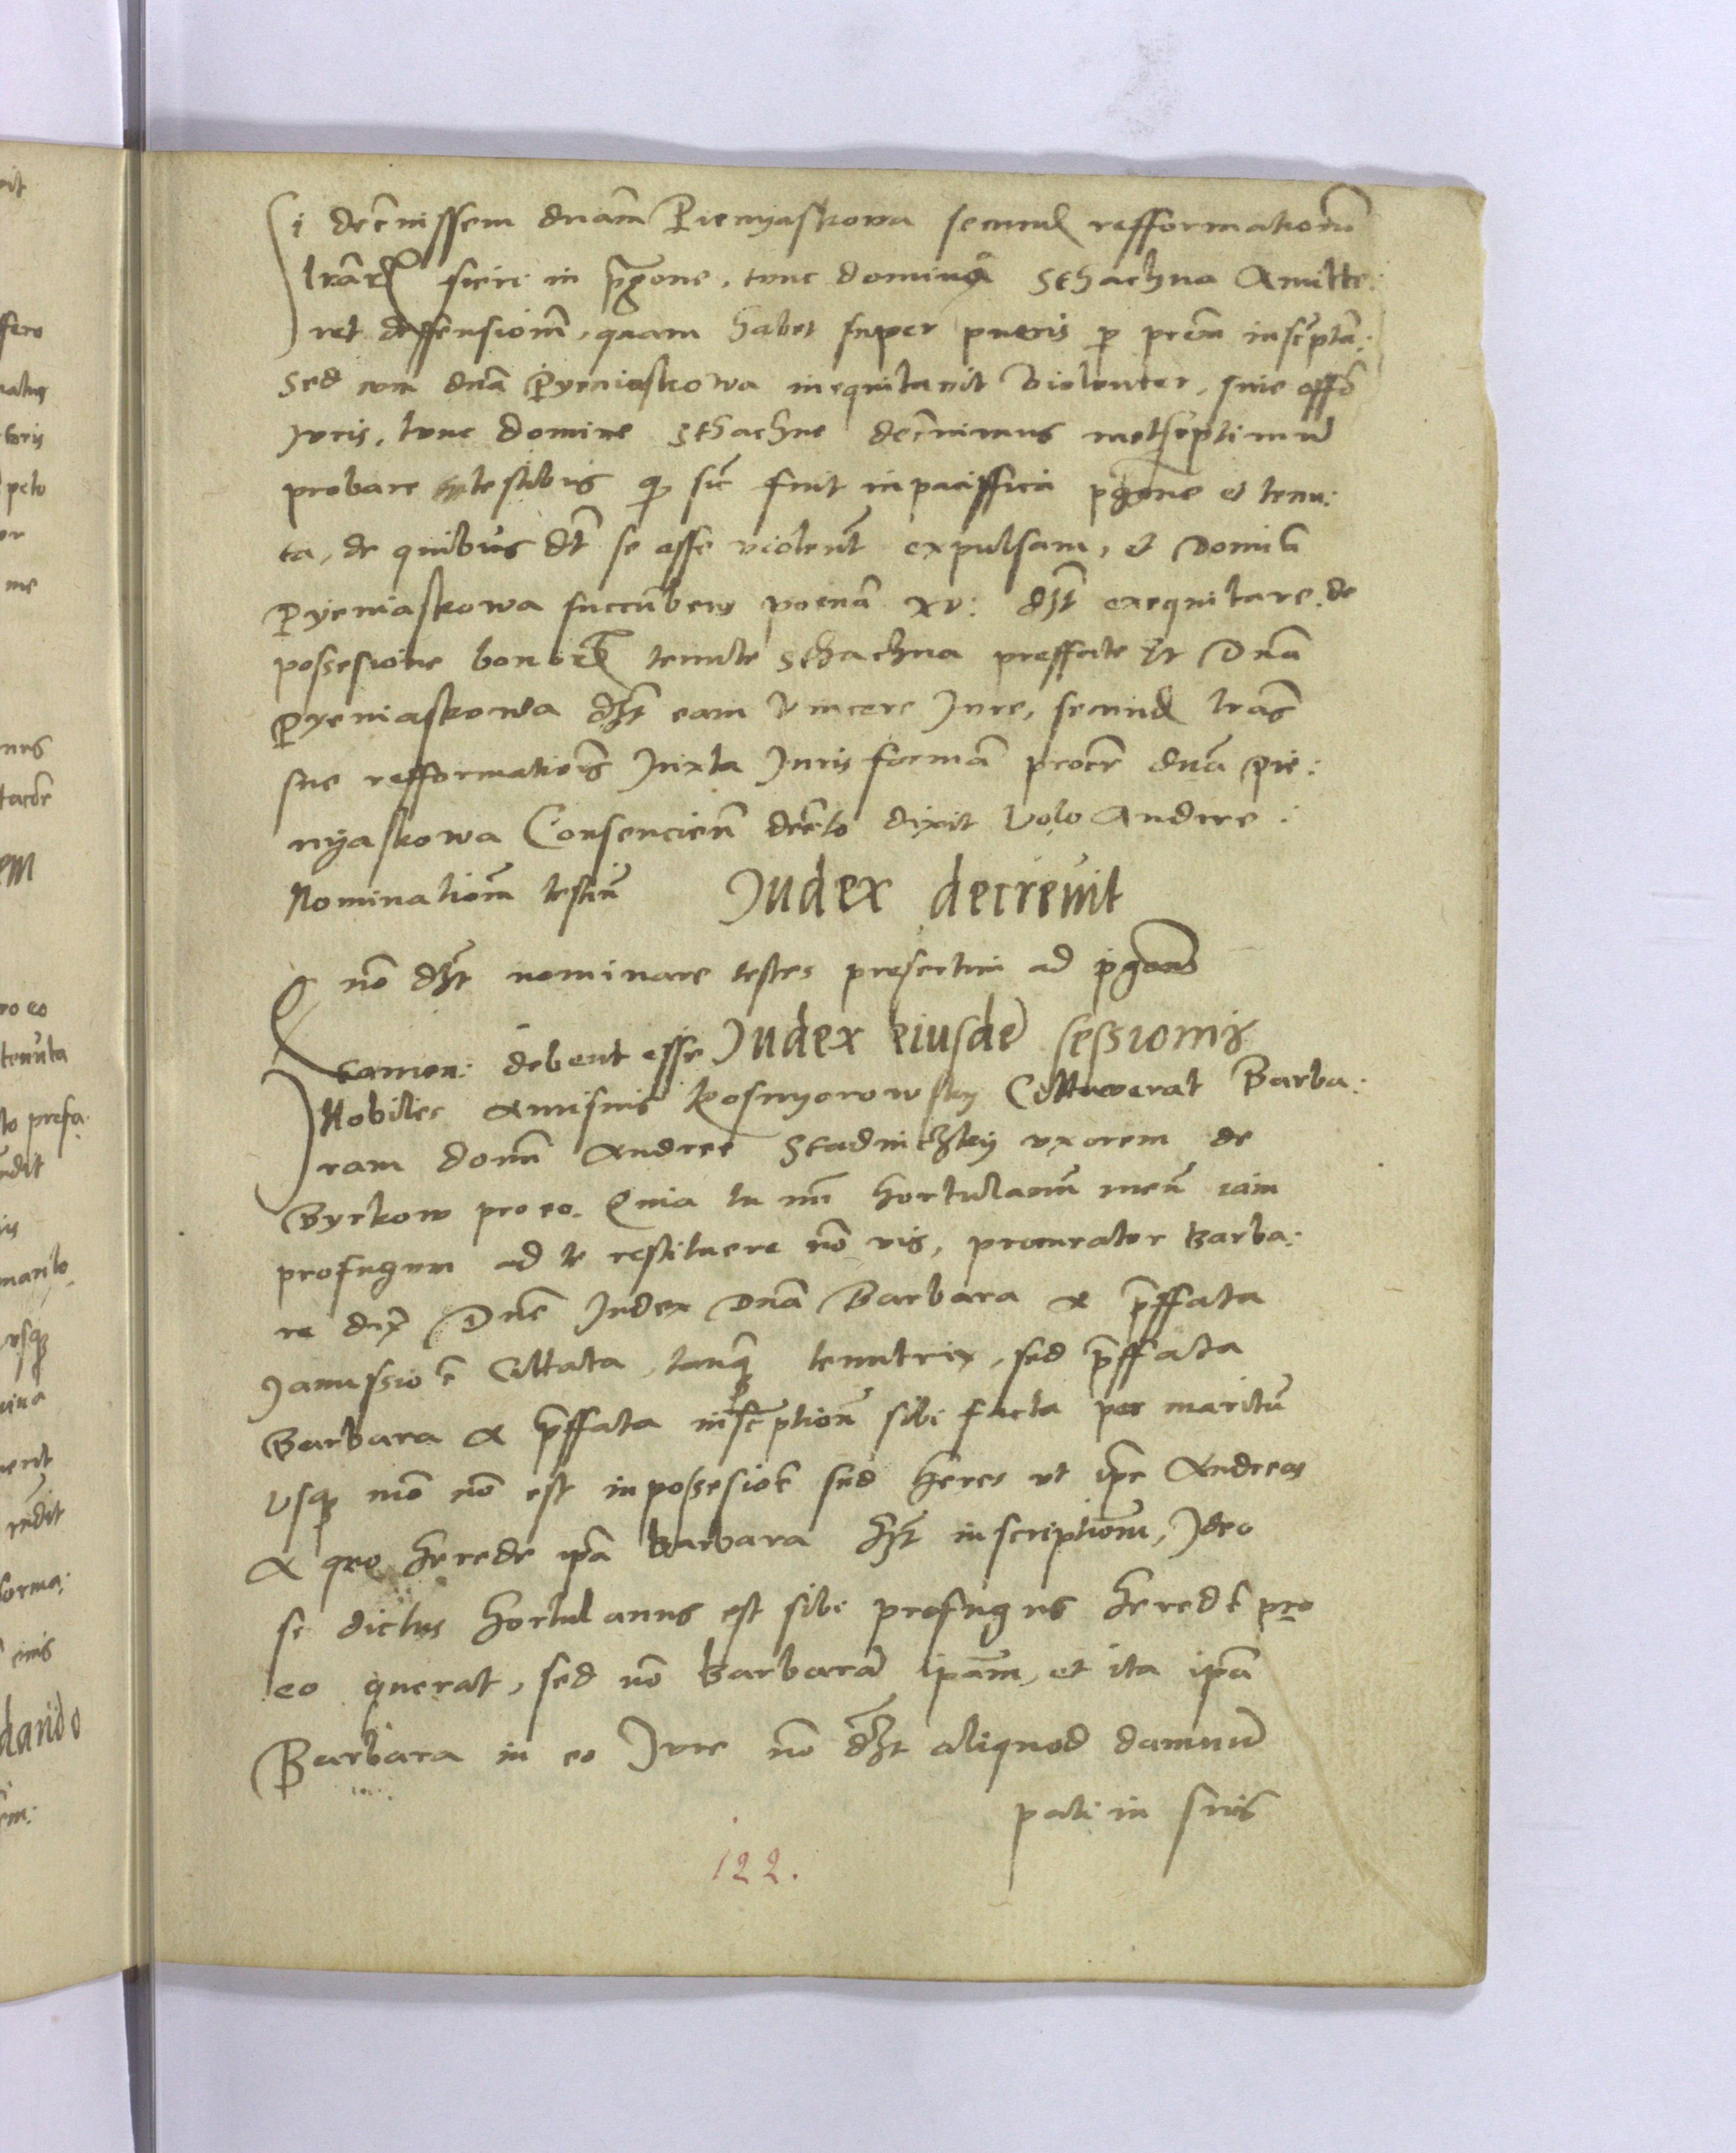 Si decnissem dnam Pieniyaskowa secund refformationem
lrarum sieri in pgone, tunc domina Sthachna Amitte:
ret deffensionem, quam habet super pueris p prem inscptam:
Sed cum dna Pyeniaskowa inequitavit violenter, sine offo
Juris, tunc domine Sthachne decnimus metseptimum
probare testibus q sic fuit in paciffica pgone et tenu:
ta, de quibus dt se esse violent expulsam, et Domia
Pyeniaskowa succumbens poenam xv: dzt exequitare de
possesione bonorum tenute Sthachna preffate Et Dna
Pyeniaskowa dzt eam vincere Jure, secund lras
sue refformationis Juxta Juris formam procr dna Pie:
nyaskowa Consencien decreto dixit Volo Audire:
Nominationem testium Judex decrevit
Q no dzt nominare testes presertim ad pgoam
tamen: debent esse Judex eiusde sessionis
Nobiles Kosmyorowsky Cittaverat Barba:
ram domi Andree Stadniczkij uxorem de
Byrkow pro eo. Quia tu mi hortulanum meum iam
profugum ad te restituere no vis, procurator Barba:
re dix Dne Judex Dna Barbara ex pffata
Janussio e Cittata, tanq tenutrix, sed pffata
Barbara ex pffata inscptione sibi facta per maritu
Usq mo no est in possesione sed heres ut ipe Andreas
ex quo herede ipa Barbara hzt inscriptionem, Ideo
si dictus hortulanus est sibi profugus herede pro
eo querat, sed no Barbara ipam, et ita ipa
Barbara in eo Jure no dzt aliquod damnum
pati in suis
122.